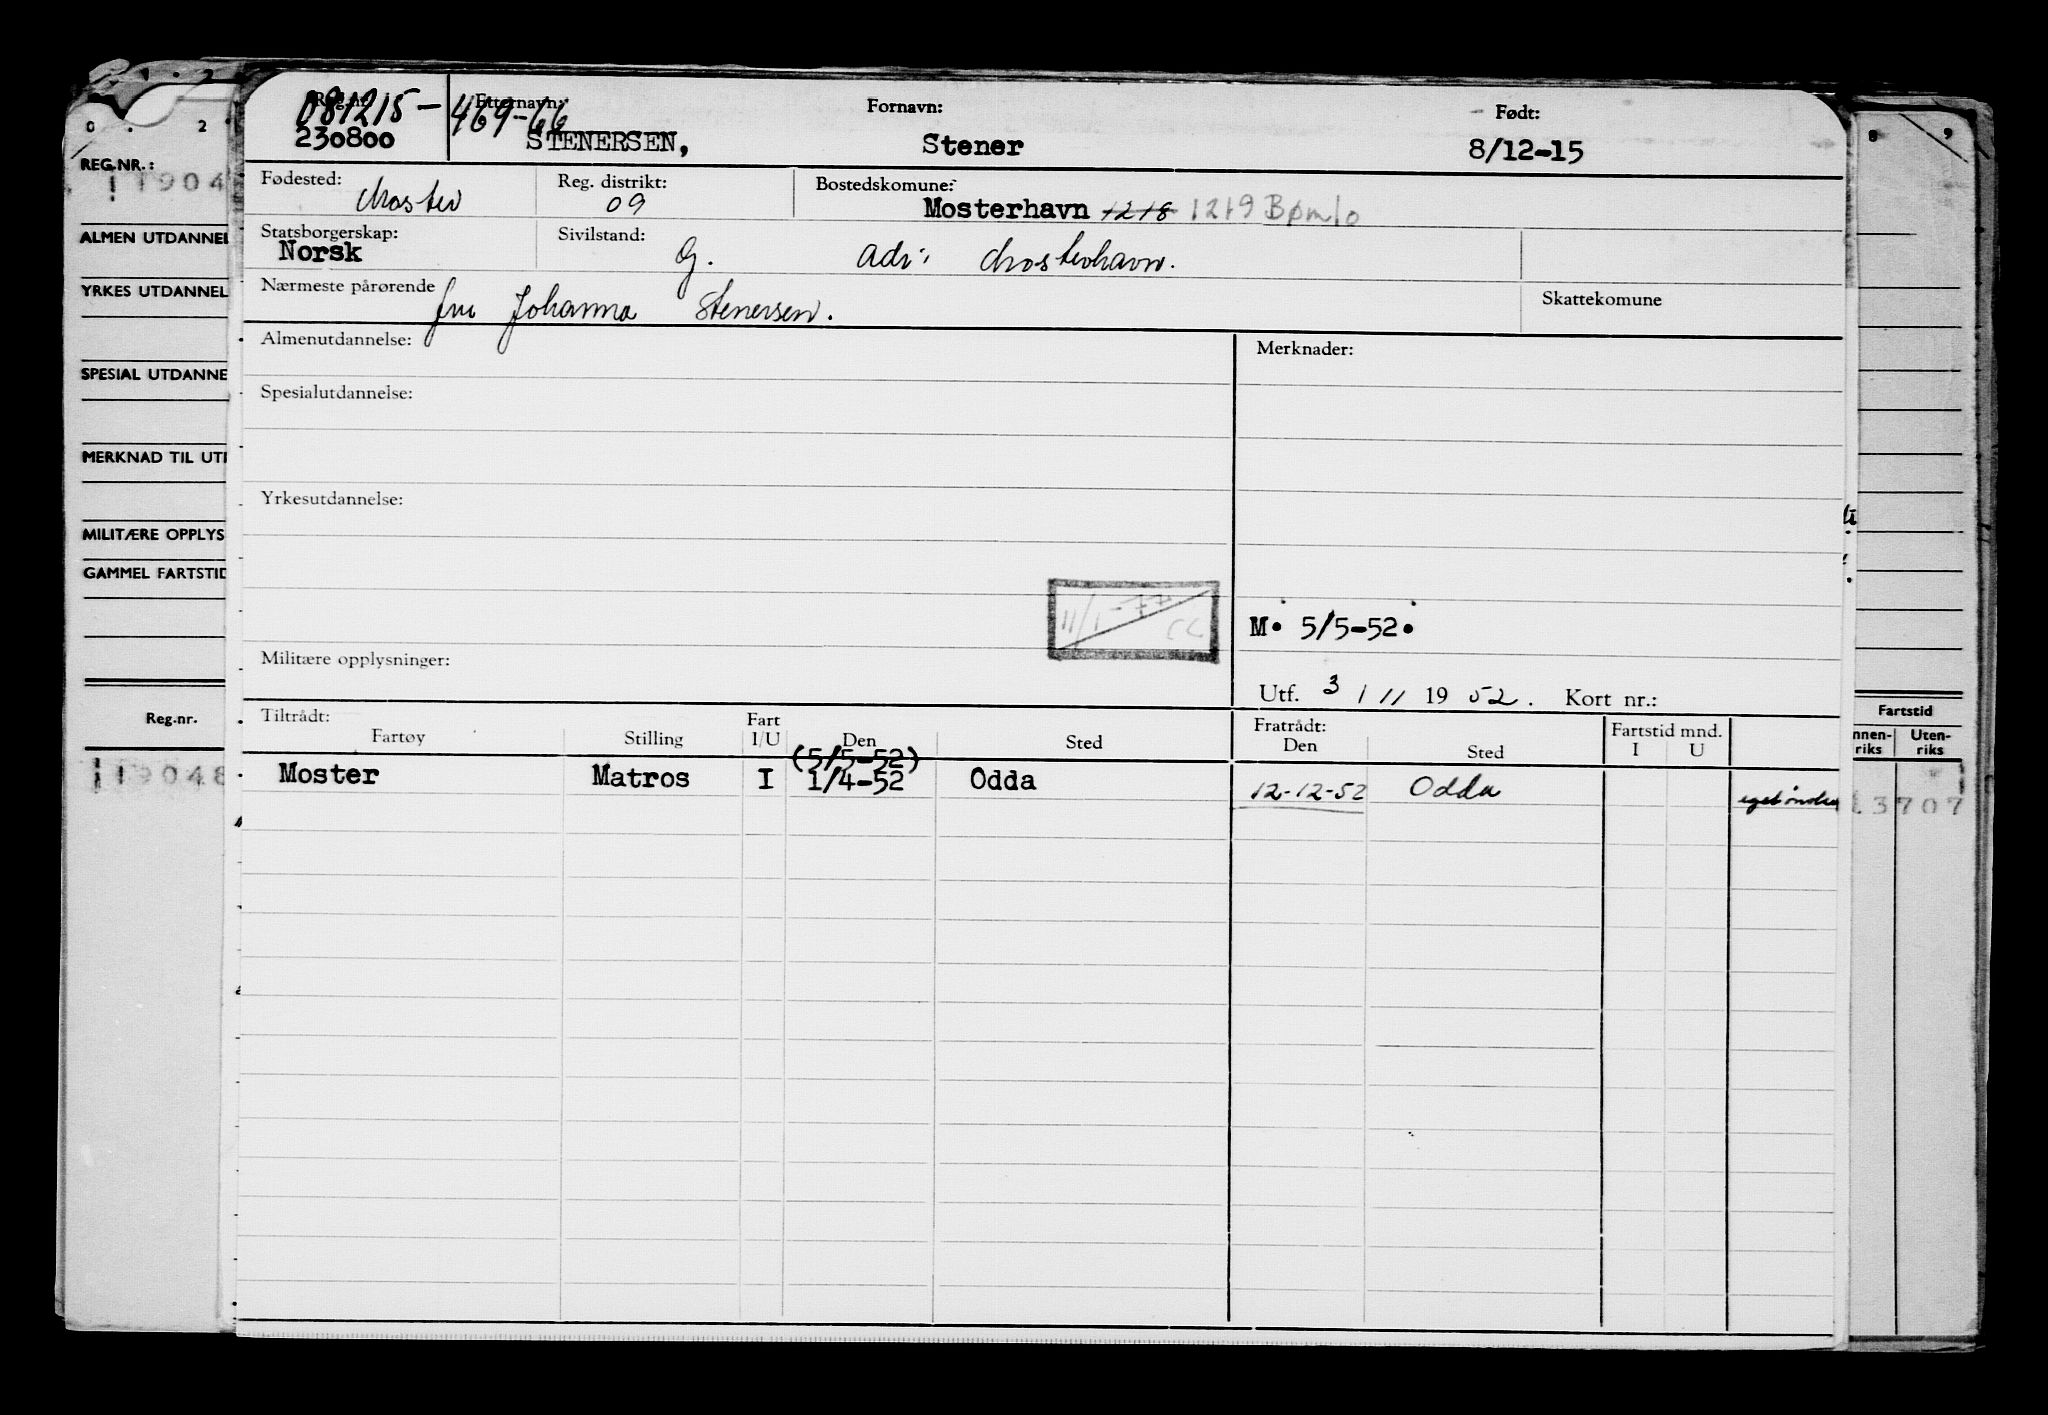 Reg.nr. Etternavn: Fornavn: Født:
081215- 469-66
230800 STENERSEN, Stener 8/12-15
Fødested: Moster Reg. distrikt: 09 Bostedskomune: Mosterhavn 1218 1219 Bømlo
Statsborgerskap: Norsk Sivilstand: G. Adr: Mosterhavn.
Nærmeste pårørende fru Johanna Stenersen. Skattekomune
Almenutdannelse: Merknader:
Spesialutdannelse:
Yrkesutdannelse:
11/1-77
M. 5/5-52.
Militære opplysninger:
Utf. 3 / 11 19 52. Kort nr.:
Tiltrådt: Fratrådt:
Fartøy Stilling Fart I/U Den Sted Den Sted Fartstid mnd. I U
(5/5-52)
Moster Matros I 1/4-52 Odda 12-12-52 Odda
0 . 2
REG.NR.:
1904
ALMEN UTDANNEL
YRKES UTDANNEL
SPESIAL UTDANNE
MERKNAD TIL UT
MILITÆRE OPPLYS
GAMMEL FARTSTID
Reg.nr.
19048
8 9
Fartstid
nnen-riks Uten-riks
3707